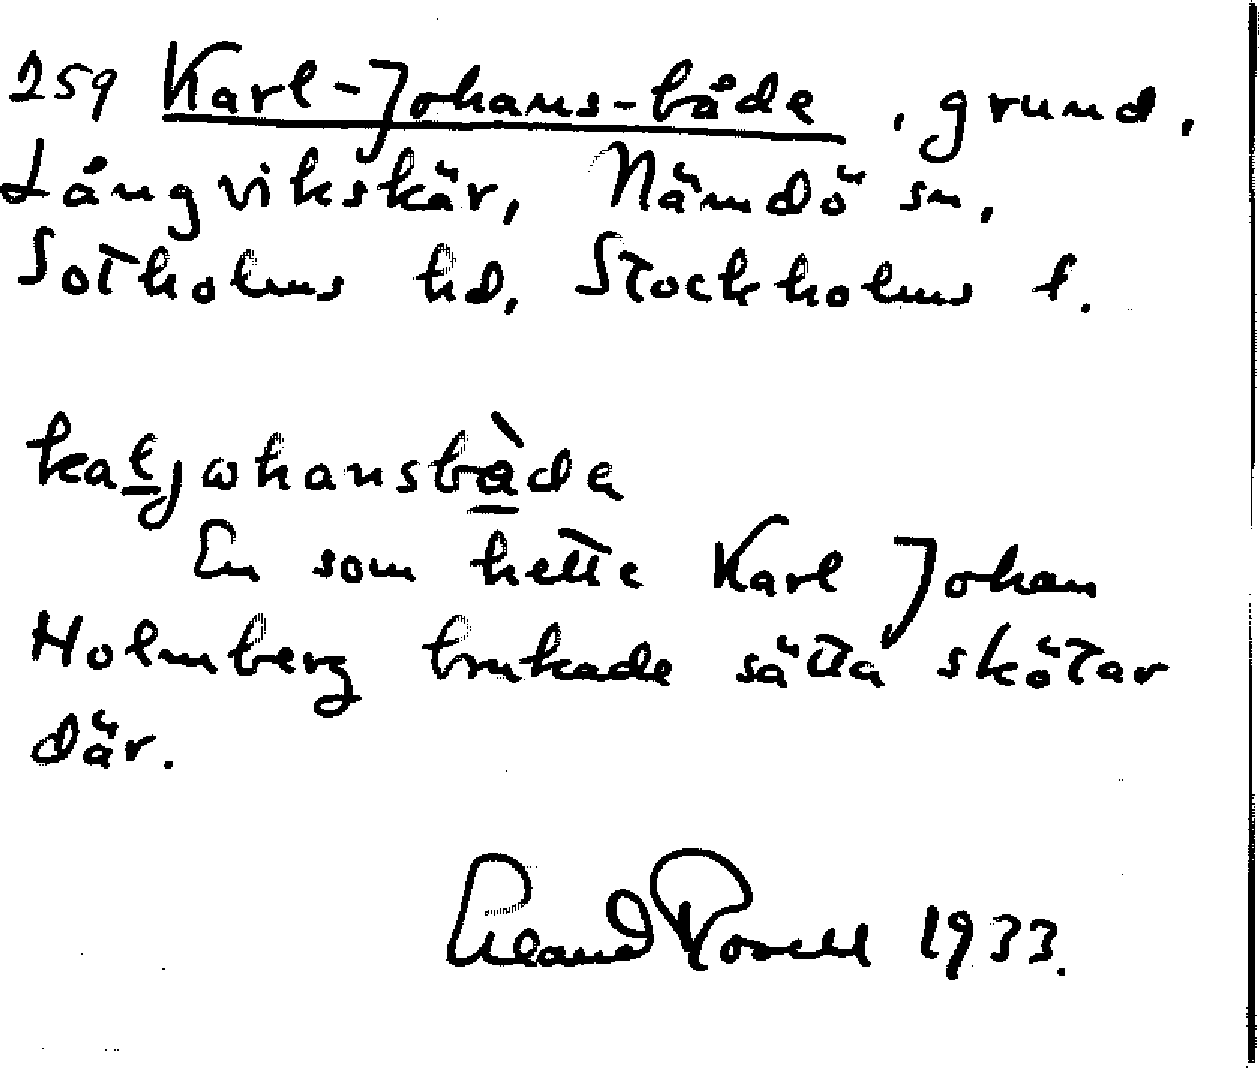 259 Karl-Johans-båda, grund,
Långvikskär, Nämdö sn,
Sotholms hd, Stockholms l.
kaljωhansbàda
En som hette Karl Johan
Holmberg brukade sätta skötar
där.
Erland Rosell 1933.